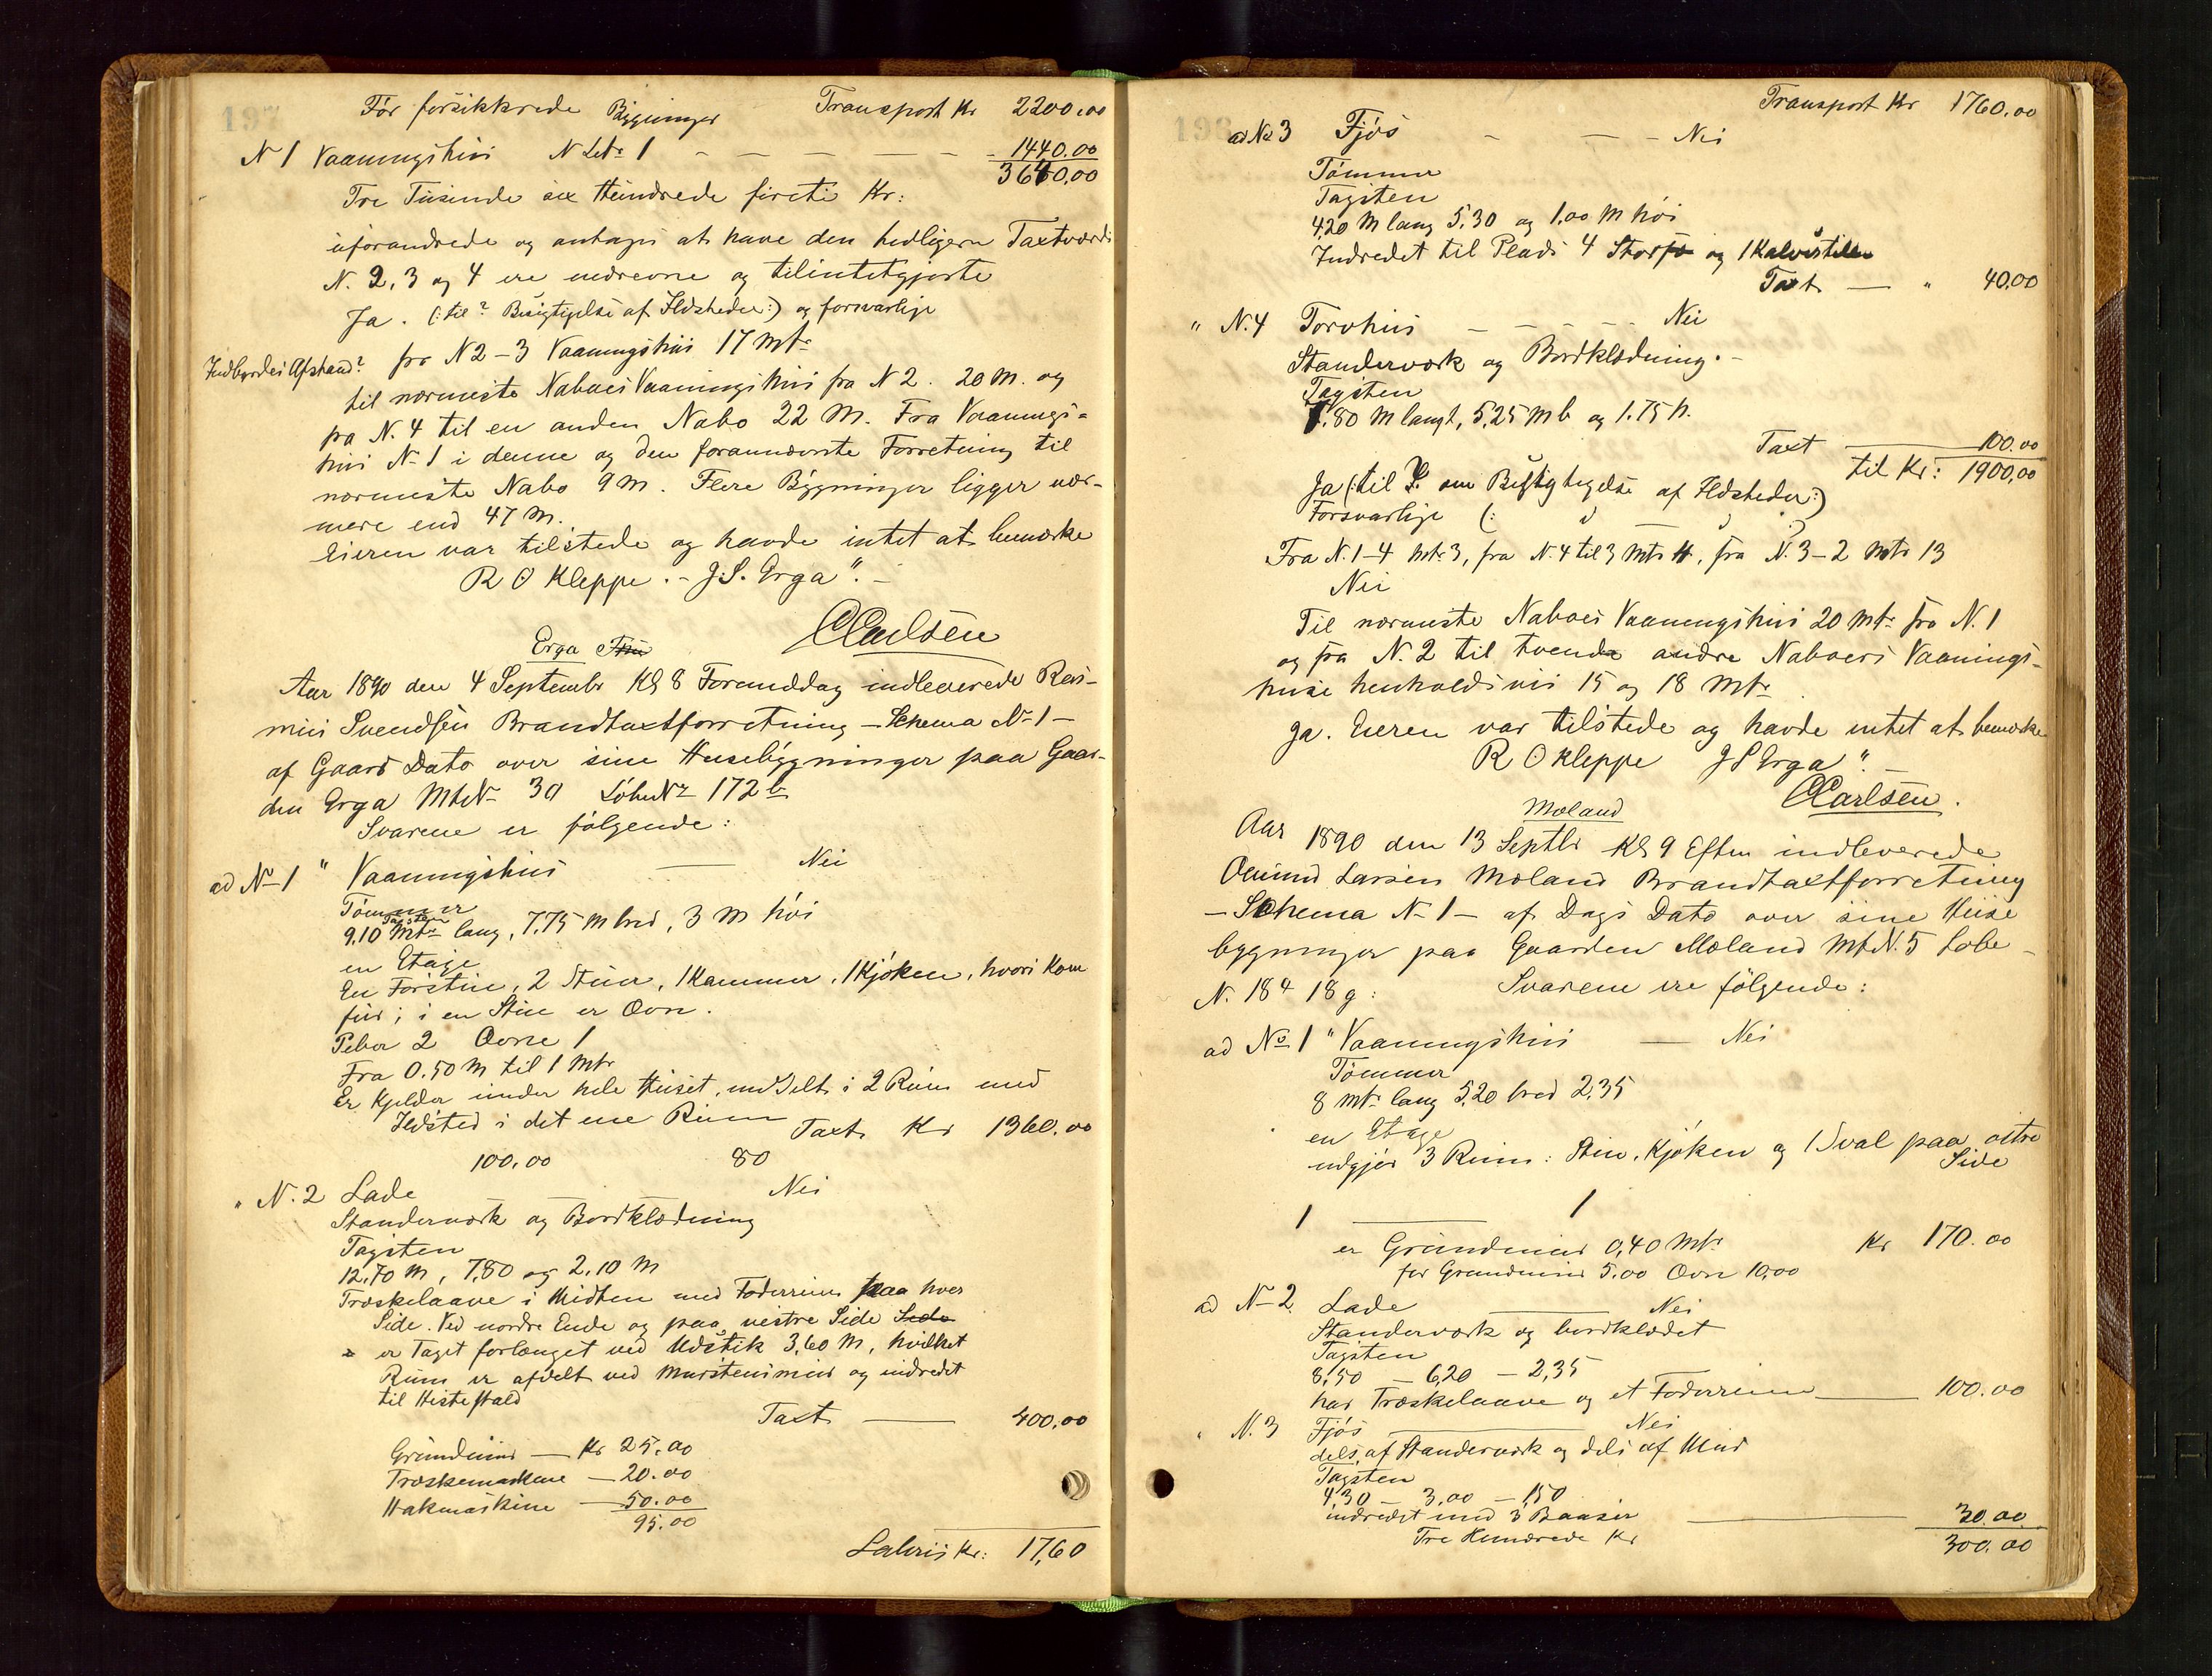 197
Før forsikkrede Bygninger Transport Kr 2200.00
N 1 Vaaningshus N Litr 1 - - - - - 1440.00
3640.00
Tre Tusinde sex Hundrede firti Kr:
uforandrede og antages at have den tidligere Taxtværdi
N. 2, 3 og 4 ere nedrevne og tilintetgjorte
Ja. (: til ? Besigtigelse af Ildsteder:) og forsvarlige
Indbyrdes Afstand? fra N 2-3 Vaaningshus 17 Mtr
til nærmeste Naboes Vaaningshus fra N 2. 20 M. og
fra N. 4 til en anden Nabo 22 M. Fra Vaanings-
hus N 1 i denne og den forannævnte Forretning til
nærmeste Nabo 9 M. Flere Bygninger ligger nær-
mere end 47 M.
Eieren var tilstede og havde intet at bemærke
R O Kleppe. - J. S. Erga". -
CCarlsen
Erga
Aar 1890 den 4 Septembr Kl 8 Formiddag indleverede Ras-
mus Svendsen Brandtaxtforretning - Schema N 1 -
af Gaars Dato over sine Husebygninger paa Gaar-
den Erga MtrN 30 LøbeNr 172 b
Svarene er følgende:
ad N 1 " Vaaningshus — Nei
Tømmer
Tagsten
9.10 Mtr lang, 7.75 M bred, 3 M høi
en Etage
En Forstue, 2 Stuer, 1 Kammer, 1 Kjøken, hvori Kom
fur; i en Stue er Ovn.
Peber 2 Ovne 1
Fra 0.50 M til 1 Mtr
Er Kjelder under hele Huset, inddelt i 2 Rum med
Ildsted i det ene Rum Taxt Kr 1360.00
100.00 80
" N. 2 Lade — — — Nei
Standerværk og Bordklædning
Tagsten
12.70 M, 7.80 og 2.10 M
Træskelaave i Midten med Foderrum paa hver
Side. Ved nordre Ende og paa vestre Side
er Taget forlænget ved Udstik 3.60 M, hvilket
Rum er afdelt ved Murstensmur og indredet
til Hestestald
Taxt — 400.00
Grundmur — Kr 25.00
Træskemaskine — 20.00
Hakmaskine — 50.00
95.00
Lateris Kr: 17,60
198
Transport Kr 1760.00
ad No 3 Fjøs - — - Nei
Tømmer
Tagsten
4.20 M lang 5.30 og 1.00 M høi
Indredet til Plads 4 Storfæ og 1 Kalvestelle
Taxt — " 40.00
" N. 4 Torvhus - - - - Nei
Standerværk og Bordklædning. -
Tagsten
7.80 M langt, 5,25 M b og 1.75 h.
Taxt — 100.00
til Kr: 1900,00
Ja (: til om Besigtigelse af Ildsteder:)
Forsvarlige (: " — " :)
Fra N. 1-4 Mtr 3, fra N. 4 til 3 Mtr 4, fra N. 3-2 Mtr 13
Nei
Til nærmeste Naboes Vaaningshus 20 Mtr fra N. 1
og fra N. 2 til tvende andre Naboers Vaanings-
huse henholdsvis 15 og 18 Mtr
Ja. Eieren var tilstede og havde intet at bemærke
R O Kleppe J S Erga". -
CCarlsen.
Moland
Aar 1890 den 13 Septbr Kl 9 Eftm indleverede
Larsen Moland Brandtaxtforretning
- Schema N 1 - af Dags Dato over sine Huse
bygninger paa Gaarden Moland MtrN. 5 Løbe-
N. 184 18 g: Svarene ere følgende:
ad No 1 " Vaaningshus — Nei
Tømmer
8 Mtr lang 5.20 bred 2.35
en Etage
udgjør 3 Rum: Stue, Kjøken og 1 Sval paa østre
Side
1 — 1
er Grundmur 0,40 Mtr Kr 170.00
for Grundmur 5.00 Ovn 10.00
ad N 2 Lade — Nei
Standerværk og bordklædet
Tagsten
8,50 - 6,20 - 2,35
har Træskelaave og et Foderrum — 100.00
" N. 3 Fjøs — Nei
dels af Standerværk og dels af Mur
Tagsten
4.30 - 3.00 - 1,50
indredet med 3 Baaser — 30.00
Tre Hundrede Kr 300.00